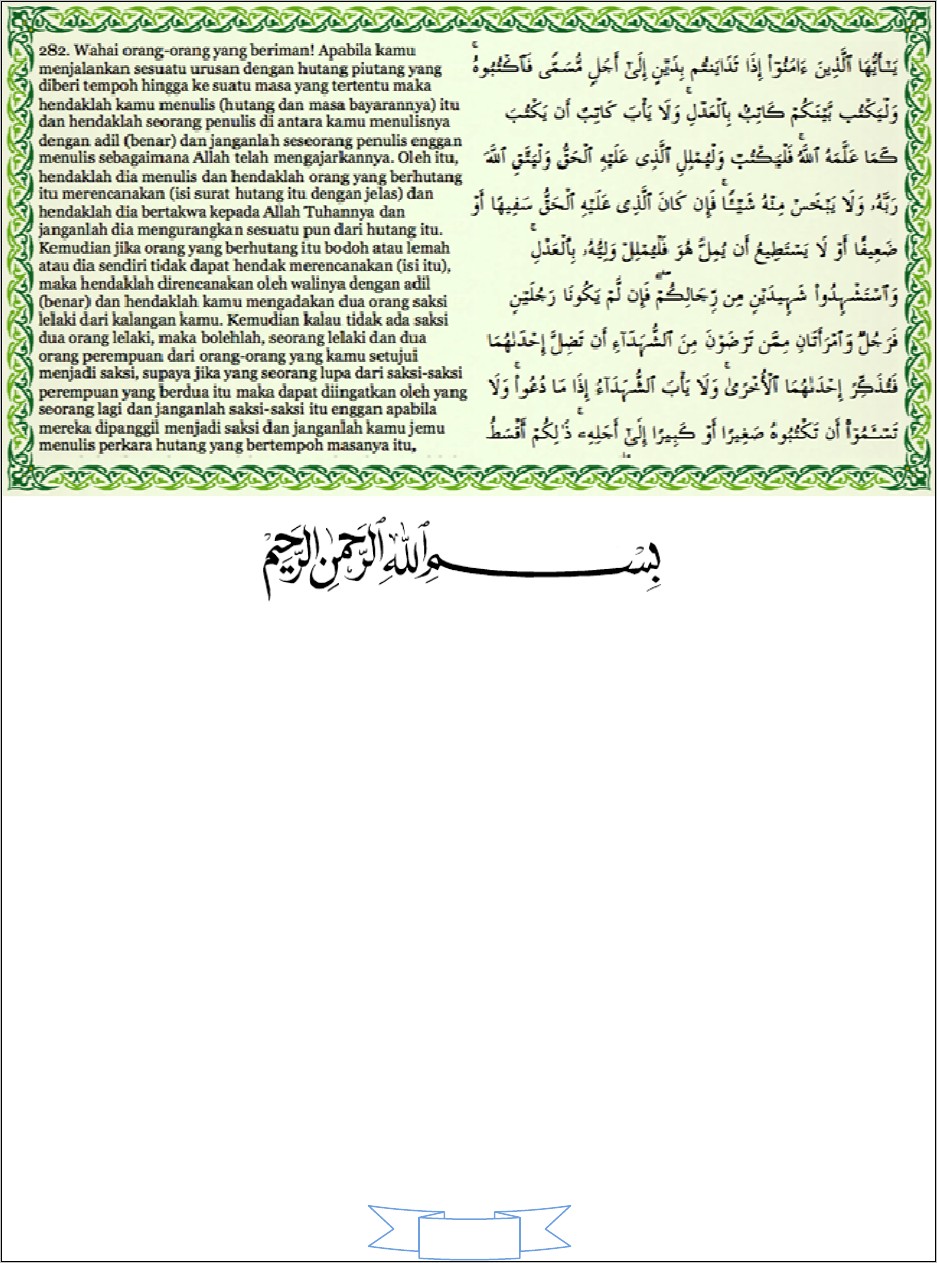 282. Wahai orang-orang yang beriman! Apabila kamu
menjalankan sesuatu urusan dengan hutang piutang yang
diberi tempoh hingga ke suatu masa yang tertentu maka
hendaklah kamu menulis (hutang dan masa bayarannya) itu
dan hendaklah seorang penulis di antara kamu menulisnya
dengan adil (benar) dan janganlah seseorang penulis enggan
menulis sebagaimana Allah telah mengajarkannya. Oleh itu,
hendaklah dia menulis dan hendaklah orang yang berhutang
itu merencanakan (isi surat hutang itu dengan jelas) dan
hendaklah dia bertakwa kepada Allah Tuhannya dan
janganlah dia mengurangkan sesuatu pun dari hutang itu.
Kemudian jika orang yang berhutang itu bodoh atau lemah
atau dia sendiri tidak dapat hendak merencanakan (isi itu),
maka hendaklah direncanakan oleh walinya dengan adil
(benar) dan hendaklah kamu mengadakan dua orang saksi
lelaki dari kalangan kamu. Kemudian kalau tidak ada saksi
dua orang lelaki, maka bolehlah, seorang lelaki dan dua
orang perempuan dari orang-orang yang kamu setujui
menjadi saksi, supaya jika yang seorang lupa dari saksi-saksi
perempuan yang berdua itu maka dapat diingatkan oleh yang
seorang lagi dan janganlah saksi-saksi itu enggan apabila
mereka dipanggil menjadi saksi dan janganlah kamu jemu
menulis perkara hutang yang bertempoh masanya itu,
يَـٰٓأَيُّهَا ٱلَّذِينَ ءَامَنُوٓا۟ إِذَا تَدَايَنتُم بِدَيْنٍ إِلَىٰٓ أَجَلٍ مُّسَمًّى فَٱكْتُبُوهُ ۚ
وَلْيَكْتُب بَّيْنَكُمْ كَاتِبٌۢ بِٱلْعَدْلِ ۚ وَلَا يَأْبَ كَاتِبٌ أَن يَكْتُبَ
كَمَا عَلَّمَهُ ٱللَّهُ ۚ فَلْيَكْتُبْ وَلْيُمْلِلِ ٱلَّذِى عَلَيْهِ ٱلْحَقُّ وَلْيَتَّقِ ٱللَّهَ
رَبَّهُۥ وَلَا يَبْخَسْ مِنْهُ شَيْـًٔا ۚ فَإِن كَانَ ٱلَّذِى عَلَيْهِ ٱلْحَقُّ سَفِيهًا أَوْ
ضَعِيفًا أَوْ لَا يَسْتَطِيعُ أَن يُمِلَّ هُوَ فَلْيُمْلِلْ وَلِيُّهُۥ بِٱلْعَدْلِ ۚ
وَٱسْتَشْهِدُوا۟ شَهِيدَيْنِ مِن رِّجَالِكُمْ ۖ فَإِن لَّمْ يَكُونَا رَجُلَيْنِ
فَرَجُلٌ وَٱمْرَأَتَانِ مِمَّن تَرْضَوْنَ مِنَ ٱلشُّهَدَآءِ أَن تَضِلَّ إِحْدَىٰهُمَا
فَتُذَكِّرَ إِحْدَىٰهُمَا ٱلْأُخْرَىٰ ۚ وَلَا يَأْبَ ٱلشُّهَدَآءُ إِذَا مَا دُعُوا۟ ۚ وَلَا
تَسْـَٔمُوٓا۟ أَن تَكْتُبُوهُ صَغِيرًا أَوْ كَبِيرًا إِلَىٰٓ أَجَلِهِۦ ۚ ذَٰلِكُمْ أَقْسَطُ
بِسْمِ ٱللَّهِ ٱلرَّحْمَـٰنِ ٱلرَّحِيمِ